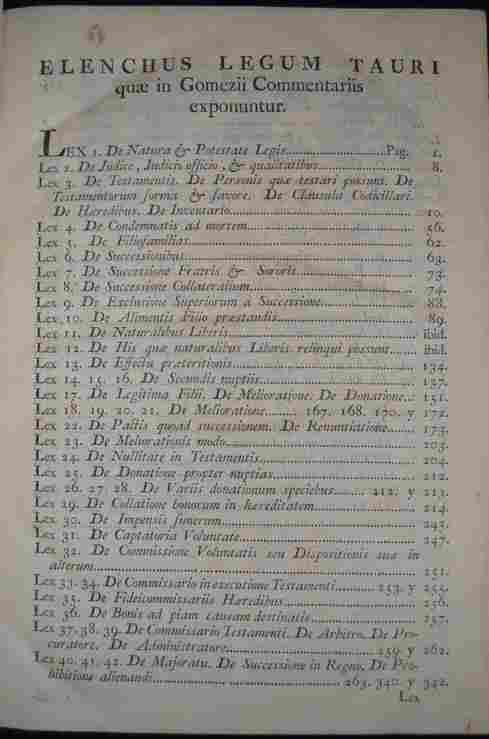 ELENCHUS LEGUM TAURI
quæ in Gomezii Commentariis
exponuntur.
LEX 1. De Natura & Potestate Legis..........Pag. 1.
Lex 2. De Judice, Judicis officio, & qualitatibus.......... 8.
Lex 3. De Testamentis. De Personis quæ testari possunt. De
Testamentorum forma & favore. De Clausula Codicillari.
De Hæredibus. De Inventario.......... 10.
Lex 4. De Condemnatis ad mortem.......... 56.
Lex 5. De Filiofamilias.......... 62.
Lex 6. De Successionibus.......... 63.
Lex 7. De Successione Fratris & Sororis.......... 73.
Lex 8. De Successione Collateralium.......... 74.
Lex 9. De Exclusione Superiorum a Successione.......... 88.
Lex 10. De Alimentis Filio præstandis.......... 89.
Lex 11. De Naturalibus Liberis.......... ibid.
Lex 12. De His quæ naturalibus Liberis relinqui possunt........ ibid.
Lex 13. De Effectu præteritionis.......... 134.
Lex 14. 15. 16. De Secundis nuptiis.......... 137.
Lex 17. De Legitima Filii. De Melioratione. De Donatione... 151.
Lex 18. 19. 20. 21. De Melioratione......... 167. 168. 170. y 172.
Lex 22. De Pactis quoad successionem. De Renuntiatione....... 173.
Lex 23. De Meliorationis modo.......... 203.
Lex 24. De Nullitate in Testamentis.......... 204.
Lex 25. De Donatione propter nuptias.......... 212.
Lex 26. 27. 28. De Variis donationum speciebus........ 212. y 213.
Lex 29. De Collatione bonorum in hæreditatem.......... 214.
Lex 30. De Impensis funerum.......... 245.
Lex 31. De Captatoria Voluntate.......... 247.
Lex 32. De Commissione Voluntatis seu Dispositionis suæ in
alterum.......... 251.
Lex 33. 34. De Commissario in executione Testamenti.......... 253. y 255.
Lex 35. De Fideicommissariis Hæredibus.......... 256.
Lex 36. De Bonis ad piam causam destinatis.......... 257.
Lex 37. 38. 39. De Commissario Testamenti. De Arbitro. De Pro-
curatore. De Administratore.......... 259. y 262.
Lex 40. 41. 42. De Majoratu. De Successione in Regno. De Pro-
hibitione alienandi.......... 263. 340. y 342.
Lex